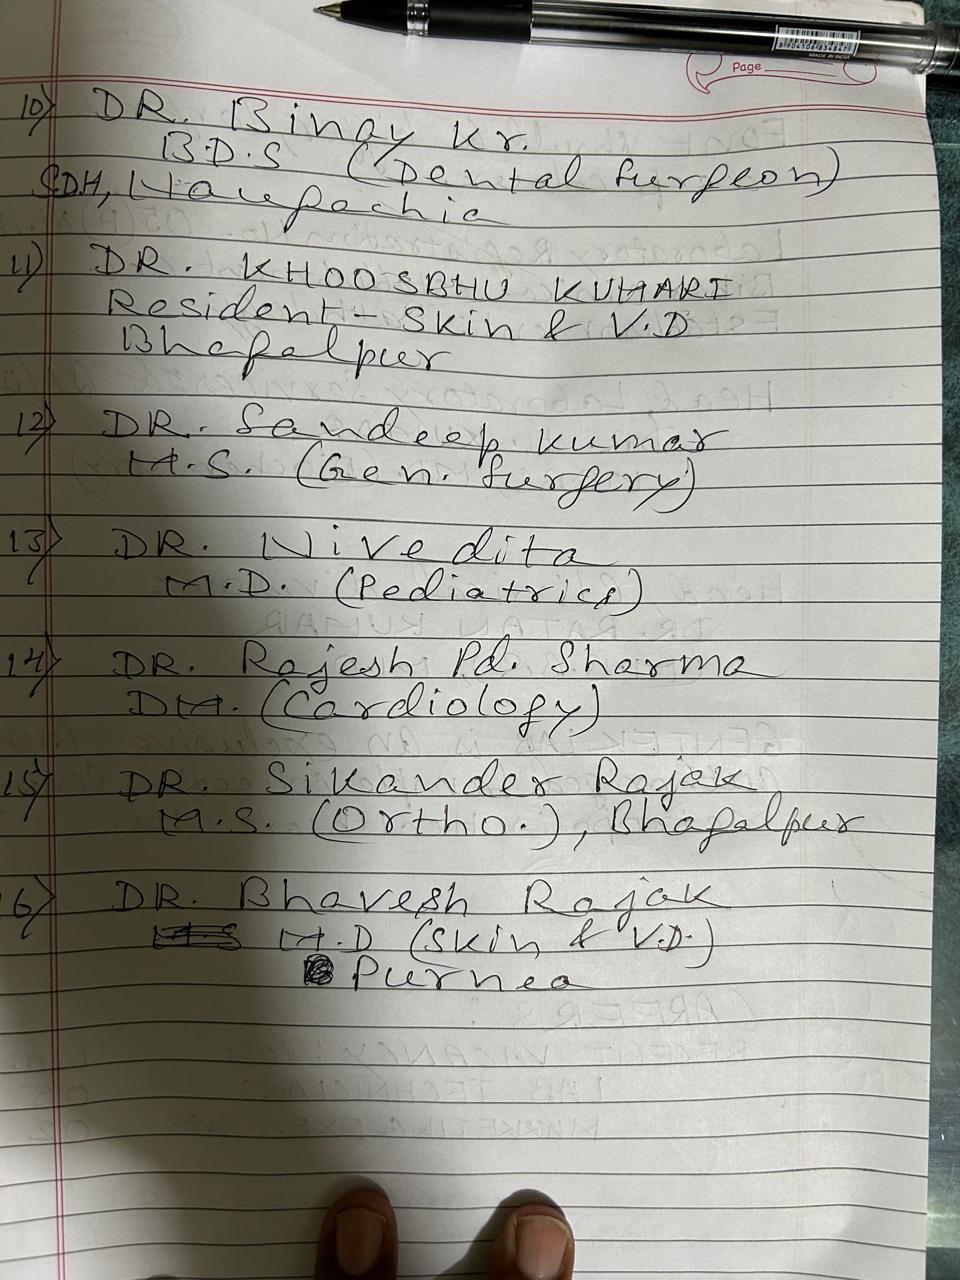 8904106834847
MADE IN INDIA
Page
10) DR. Binay Kr.
B.D.S (Dental Surgeon)
SDH, Naugachia
11) DR. KHOOSBHU KUMARI
Resident - Skin & V.D
Bhagalpur
12) DR. Sandeep Kumar
M.S. (Gen. Surgery)
13) DR. Nivedita
M.D. (Pediatrics)
14) DR. Rajesh Pd. Sharma
DM. (Cardiology)
15) DR. Sikander Rajak
M.S. (Ortho.), Bhagalpur
16) DR. Bhavesh Rajak
M.D (Skin & V.D.)
Purnea